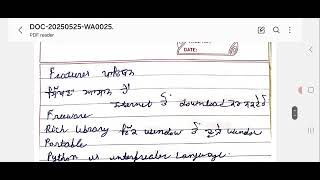 DOC-20250525-WA0025.
PDF reader
DATE:
Features ਪਾਈਥਨ
ਸਿੱਖਣਾ ਆਸਾਨ ਹੈ
Internet ਤੋਂ download ਕਰ ਸਕਦੇ ਹਾਂ
Freeware
Rich library ਇੱਕ window ਤੋਂ ਦੂਜੇ window
Portable
Python is interpreter language.